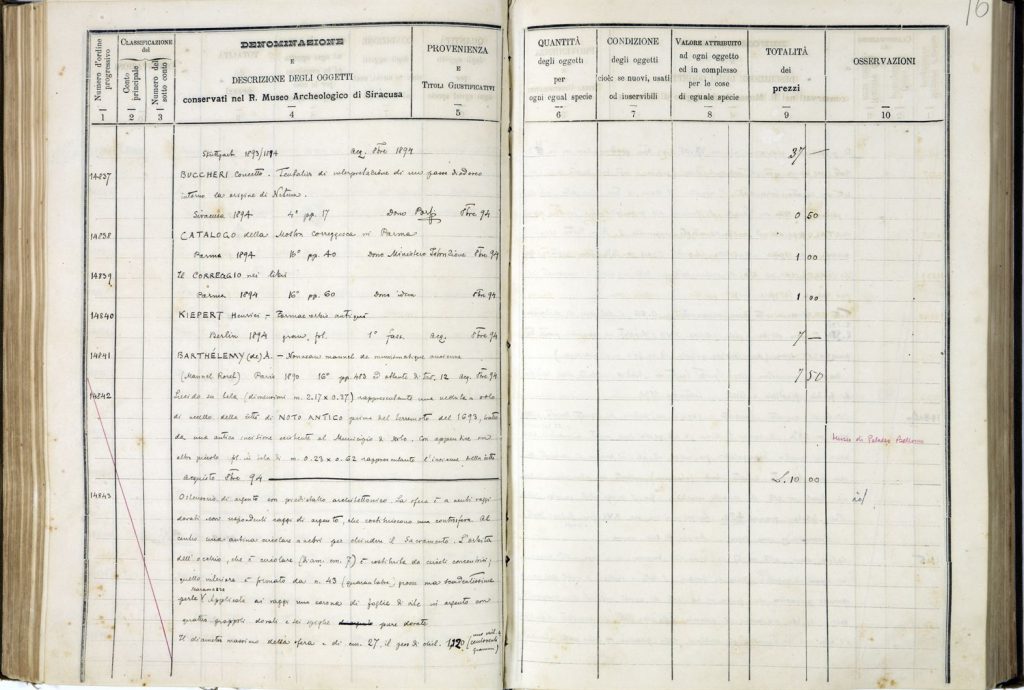 16
Numero d'ordine progressivo
CLASSIFICAZIONE del
Conto principale
Numero del sotto conto
DENOMINAZIONE
E
DESCRIZIONE DEGLI OGGETTI
conservati nel R. Museo Archeologico di Siracusa
PROVENIENZA
E
TITOLI GIUSTIFICATIVI
QUANTITÀ
degli oggetti
per
ogni egual specie
CONDIZIONE
degli oggetti
cioè: se nuovi, usati
od inservibili
VALORE ATTRIBUITO
ad ogni oggetto
ed in complesso
per le cose
di eguale specie
TOTALITÀ
dei
prezzi
OSSERVAZIONI
1 2 3 4 5 6 7 8 9 10
Stuttgart 1893/1894 acq. 8bre 1894 37 —
14837 BUCCHERI Concetto. di interpretazione di un passo di Diodoro
intorno la origine di
Siracusa 1894 4° pp. 17 Dono 8bre 94 0 50
14838 CATALOGO della Mostra Correggesca in Parma
Parma 1894 16° pp. 40 Dono Ministero Istruzione 8bre 94 1 00
14839 Il CORREGGIO nei libri
Parma 1894 16° pp. 60 Dono idem 8bre 94 1 00
14840 KIEPERT Henrici – Formae orbis antiqui
Berlin 1894 gran. fol. 1° fasc. acq. 8bre 94 7 —
14841 BARTHÉLEMY (de) A. – Nouveau manuel de numismatique ancienne
(Manuel Roret) Paris 1890 16° pp. 482 ed atlante di tav. 12 acq. 8bre 94 7 50
14842 Lucido su tela (dimensioni m. 2.17 x 0.37) rappresentante una veduta a volo
di uccello della città di NOTO ANTICO prima del terremoto del 1693, tratta
da una antica incisione esistente al Municipio di Noto. Con appendice un
altro piccolo in tela di m. 0.23 x 0.62 rappresentante l'incisione della città
Museo di Palazzo Bellomo
Acquisto 8bre 94 L. 10 00
14843 Ostensorio di argento con piedistallo architettonico. La sfera è a venti raggi
id
dorati con rispondenti raggi di argento, che costituiscono una controsfera. Al
centro una circolare a vetri per chiudere il Sacramento. L'orbita
dell'occhio, che è circolare (diam. cm. 7) è costituita da circoli concentrici;
quello interiore è formato da n. 43 (quarantatre) grosse ma scadentissime
perle Applicata ai raggi una corona di foglie di vite in argento con
quattro grappoli dorati e sei spighe pure dorate
Il diametro massimo della sfera è di cm. 27, il peso di chil. 1,120